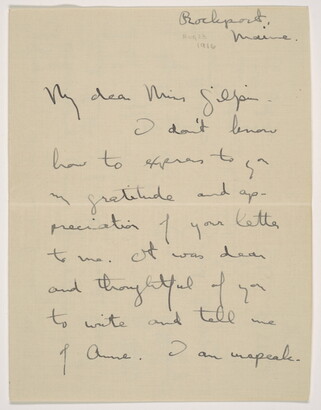 Rockport,
Maine.
Aug 19
1916
My dear Miss Gilpin.
I don't know
how to express to yr
my gratitude and ap-
preciation of your letter
to me. It was dear
and thoughtful of you
to write and tell me
of Anne. I am unspeak-